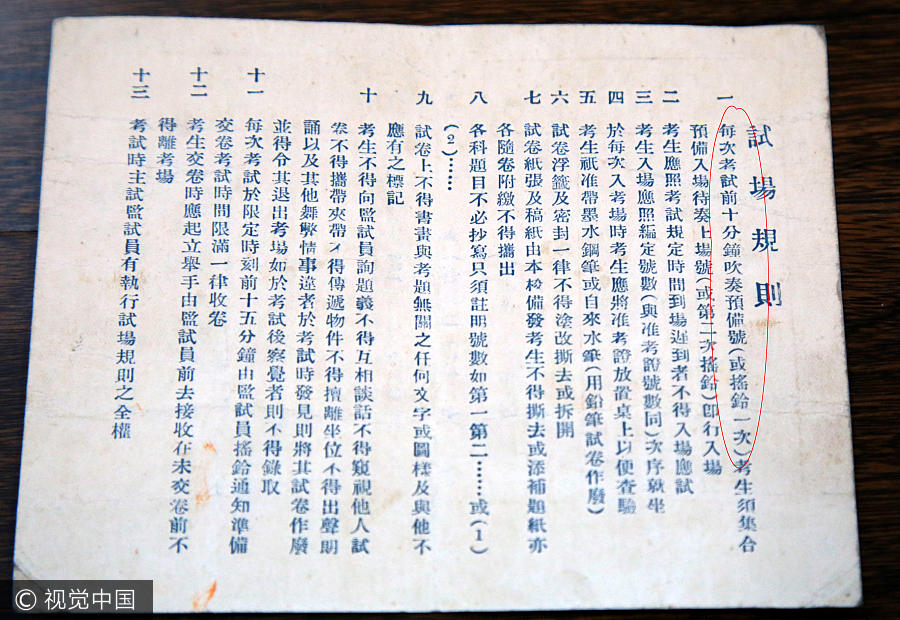 試場規則
一 每次考試前十分鐘吹奏預備號(或搖鈴一次)考生須集合
預備入場待奏上場號(或第二次搖鈴)卽行入場
二 考生應照考試規定時間到場遲到者不得入場應試
三 考生入場應照編定號數(與准考證號數同)次序就坐
四 於每次入考場時考生應將准考證放置桌上以便查驗
五 考生祇准帶墨水鋼筆或自來水筆(用鉛筆試卷作廢)
六 試卷浮籤及密封一律不得塗改撕去或拆開
七 試卷紙張及稿紙由本校備發考生不得撕去或添補題紙亦
各隨卷附繳不得攜出
八 各科題目不必抄寫只須註明號數如第一第二……或(1)
(2)……
九 試卷上不得書畫與考題無關之任何文字或圖樣及與他不
應有之標記
十 考生不得向監試員詢題義不得互相談話不得窺視他人試
卷不得攜帶夾帶不得傳遞物件不得擅離坐位不得出聲朗
誦以及其他舞弊情事違者於考試時發見則將其試卷作廢
並得令其退出考場如於考試後察覺者則不得錄取
十一 每次考試於限定時刻前十五分鐘由監試員搖鈴通知準備
交卷考試時間限滿一律收卷
十二 考生交卷時應起立舉手由監試員前去接收在未交卷前不
得離考場
十三 考試時主試監試員有執行試場規則之全權
© 视觉中国